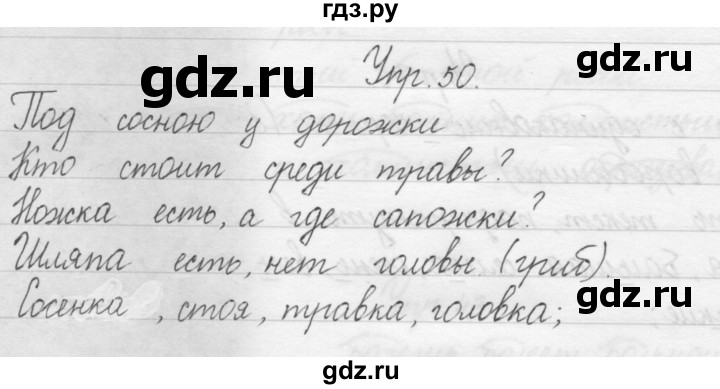 гдз.ру
Упр. 50.
gdz.ru
gdz.ru
Под сосною у дорожки
Кто стоит среди травы?
Ножка есть, а где сапожки?
Шляпа есть, нет головы (гриб).
Сосенка, стоя, травка, головка;
gdz.ru
gdz.ru